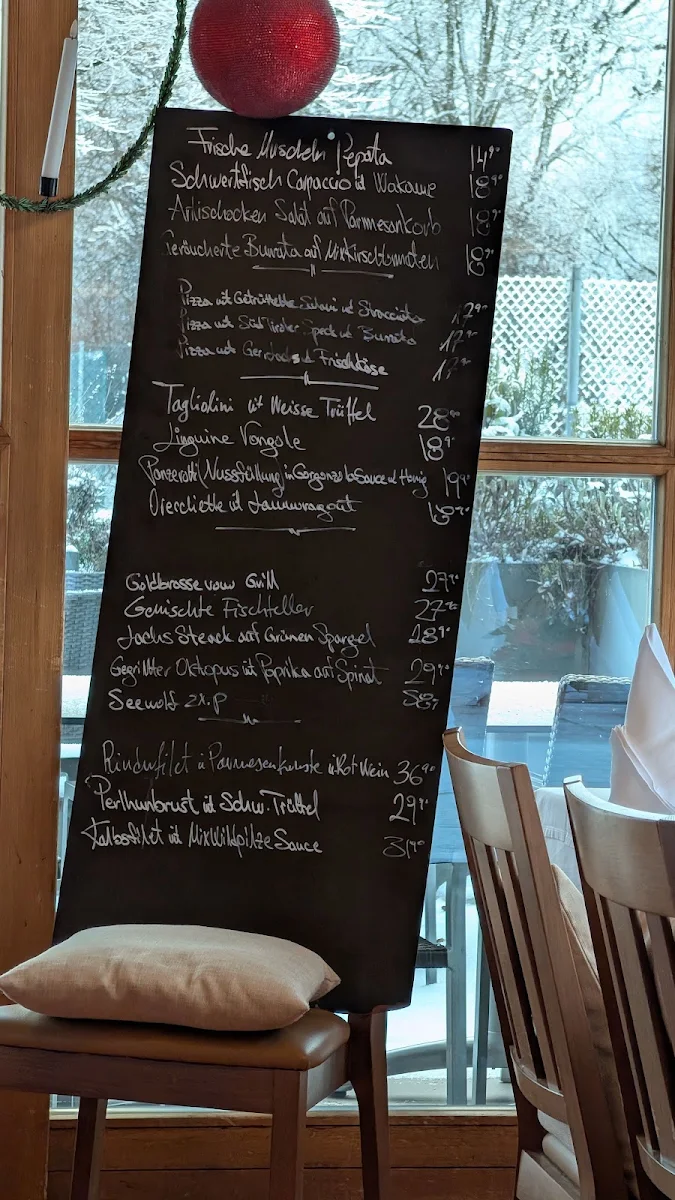 Frische Muscheln Pepata 14⁹⁰
Schwertfisch Carpaccio it Wakame 18⁹⁰
Artischocken Salat auf Parmesankorb 18⁹⁰
Geräucherte Burrata auf Mixkirschtomaten 18⁹⁰
Pizza mit Salami it Stracciata 17⁹⁰
Pizza mit Süd Tiroler Speck it Burrata 17⁹⁰
Pizza mit Frischkäse 17⁹⁰
Tagliolini it Weisse Trüffel 28⁹⁰
Linguine Vongole 18⁹⁰
Panzerotti (Nussfüllung) in Gorgonzola Sauce it Honig 19⁹⁰
Orecchiette it Lammragout
Goldbrasse vom Grill 27⁹⁰
Gemischte Fischteller 27⁹⁰
Lachs Steack auf Grünen Spargel 28⁹⁰
Gegrillter Oktopus it Paprika auf Spinat 29⁹⁰
Seewolf 2x.P 58,
Rinderfilet it Parmesankruste it Rot Wein 36⁹⁰
Perlhunbrust it Schw. Trüffel 29⁹⁰
Kalbsfilet it Mix Wildpilze Sauce 31⁹⁰